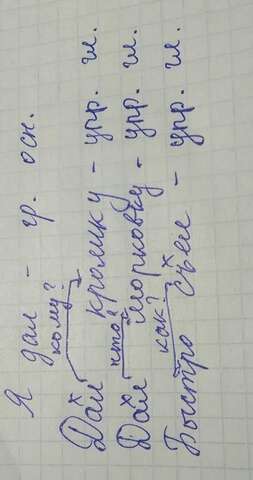 Я дал - гр. осн.
кому?
Дал кролику - упр. гл.
что?
Дал морковку - упр. гл.
как?
Быстро съел - упр. гл.